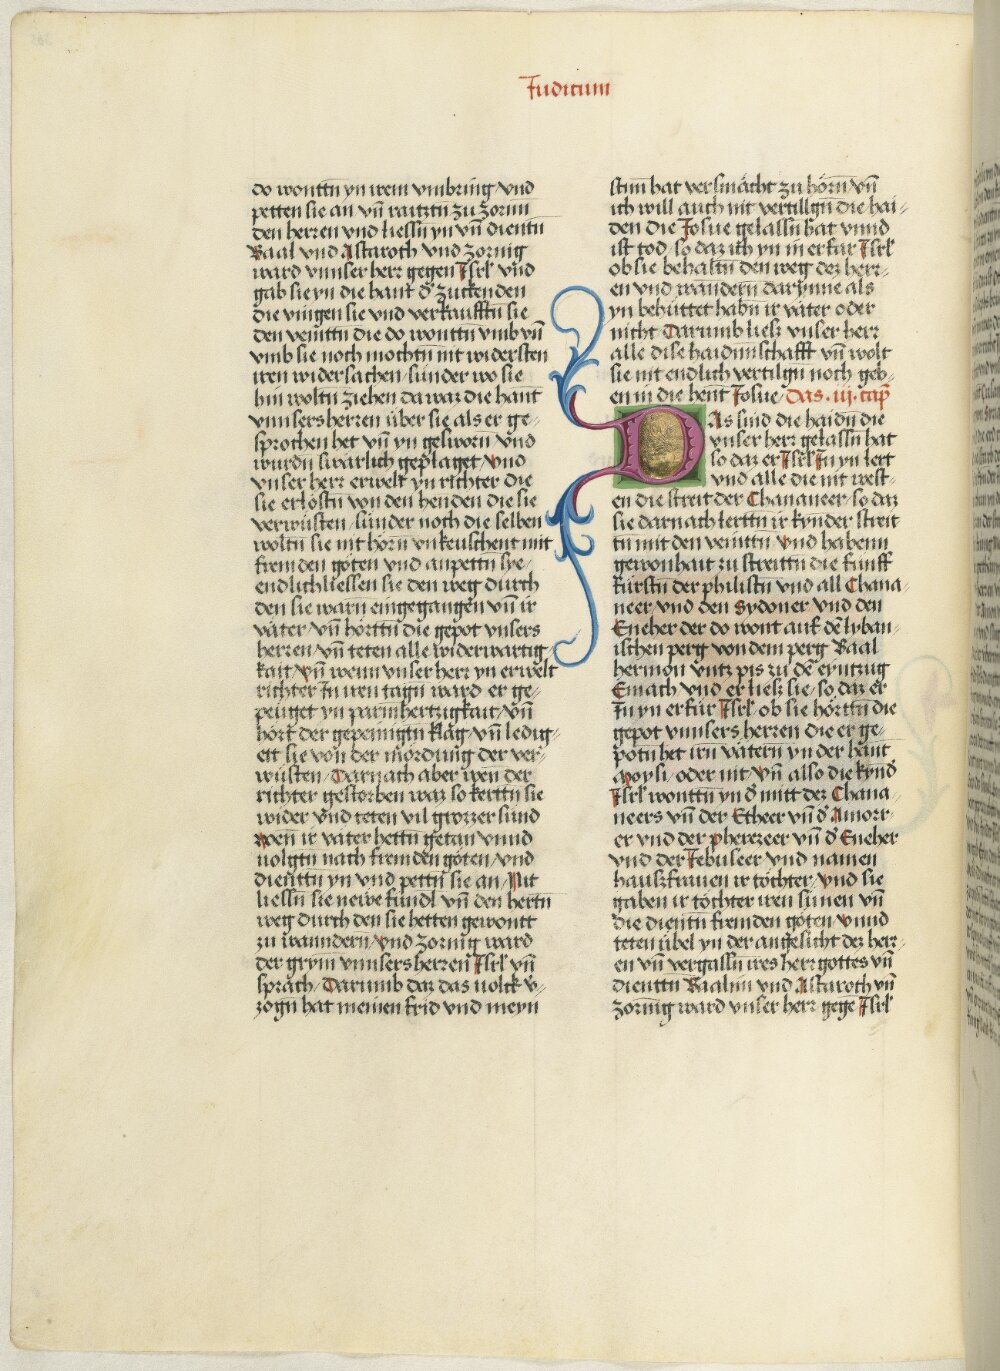 Judicum
do wonttn yn irem vmbring vnd
petten sie an vn̄ raitztn zu zornn
den herren vnd liessn̄ yn vn̄ dientn
Baal vnd Astaroth vnd zornig
ward vnnser herr gegen Jsrl̄ vnd
gab sie yn die hant d̄ zuckenden
die viengen sie vnd verkaufftn sie
den veintn die do wonttn vmb vn̄
vmb sie noch mochtn nit widersten
iren widersachen / sunder wo sie
hin woltn ziehen da waz die hant
vnnsers herren über sie als er ge⸗
sprochen het vn̄ yn gesworn vnd
wurdn swärlich geplaget / vnd
vnser herr erwelt yn richter die
sie erlöstn von den henden die sie
verwüsten / sunder noch die selben
woltn sie nit hörn vnkeuschent mit
fremden göten vnd anpettn sye /
endlich liessen sie den weg durch
den sie warn eingegangen vn̄ ir
väter / vn̄ hörttn die gepot vnsers
herren / vn̄ teten alle widerwärtig⸗
kait / vn̄ wenn vnser herr yn erwelt
richter Jn iren tagn ward er ge⸗
peuget yn parmhertzigkait / vn̄
hört der gepeinigtn klag / vn̄ ledig⸗
ett sie von der mördung der ver⸗
wüsten / Darnach aber wen der
richter gestorben waz so kerttn sie
wider vnd teten vil grözzer sünd
wen̄ ir väter hettn getan vnnd
volgtn nach fremden göten / vnd
dienttn yn vnd pettn sie an / Nit
liessn̄ sie newe fündl vn̄ den hertn
weg durch den sie hetten gewontt
zu wanndern / vnd zornig ward
der grym vnnsers herren Jsrl̄ vn̄
sprach / Darumb daz das volck v⸗
zogn hat meinen frid vnd meyn
stim hat versmächt zu hörn / vn̄
ich will auch nit vertillgn̄ die hai⸗
den die Josue gelassn̄ hat vnnd
ist tod / so daz ich yn in erfar Jsrl̄
ob sie behaltn den weg dez herr⸗
en vnd wandern darynne als
yn behüttet habn ir väter oder
nicht Darumb liesz vnser herr
alle dise haidnnschafft vn̄ wolt
sie nit endlich vertilgn noch geb⸗
en in die hent Josue / Das .iij. cap̄
DAs sind die haidn̄ die
vnser herr gelassn̄ hat
so daz er Jsrl̄ Jn yn lert
vnd alle die nit west⸗
en die streit der Chananeer / so daz
sie darnach lerttn ir kynder streit
tn mit den veintn / vnd habenn
gewonhait zu streittn die fünff
fürstn der philistn vnd all Chana⸗
neer vnd den Sydoner vnd den
Eueher der do wont auf dē lyban⸗
ischen perg von dem perg Baal
hermon vntz pis zu dē eyntzug
Emath vnd er liesz sie / so daz er
Jn yn erfür Jsrl̄ ob sie hörttn die
gepot vnnsers herren die er ge⸗
potn het irn vätern yn der hant
Moysi / oder nit / vn̄ also die kynd̄
Jsrl̄ wonttn yn d̄ mitt dez Chana⸗
neers vn̄ der Etheer vn̄ d̄ Amorr⸗
er vnd der pherezeer vn̄ d̄ Eueher
vnd der Jebuseer vnd namen
hauszfrauen ir töchter / vnd sie
gaben ir töchter iren sünen vn̄
die dientn fremden göten / vnnd
teten übel yn der angesicht dez herr⸗
en vn̄ vergassn ires herr gottes vn̄
dienttn Baalim vnd Astaroth vn̄
zornig ward vnser herr gege Jsrl̄